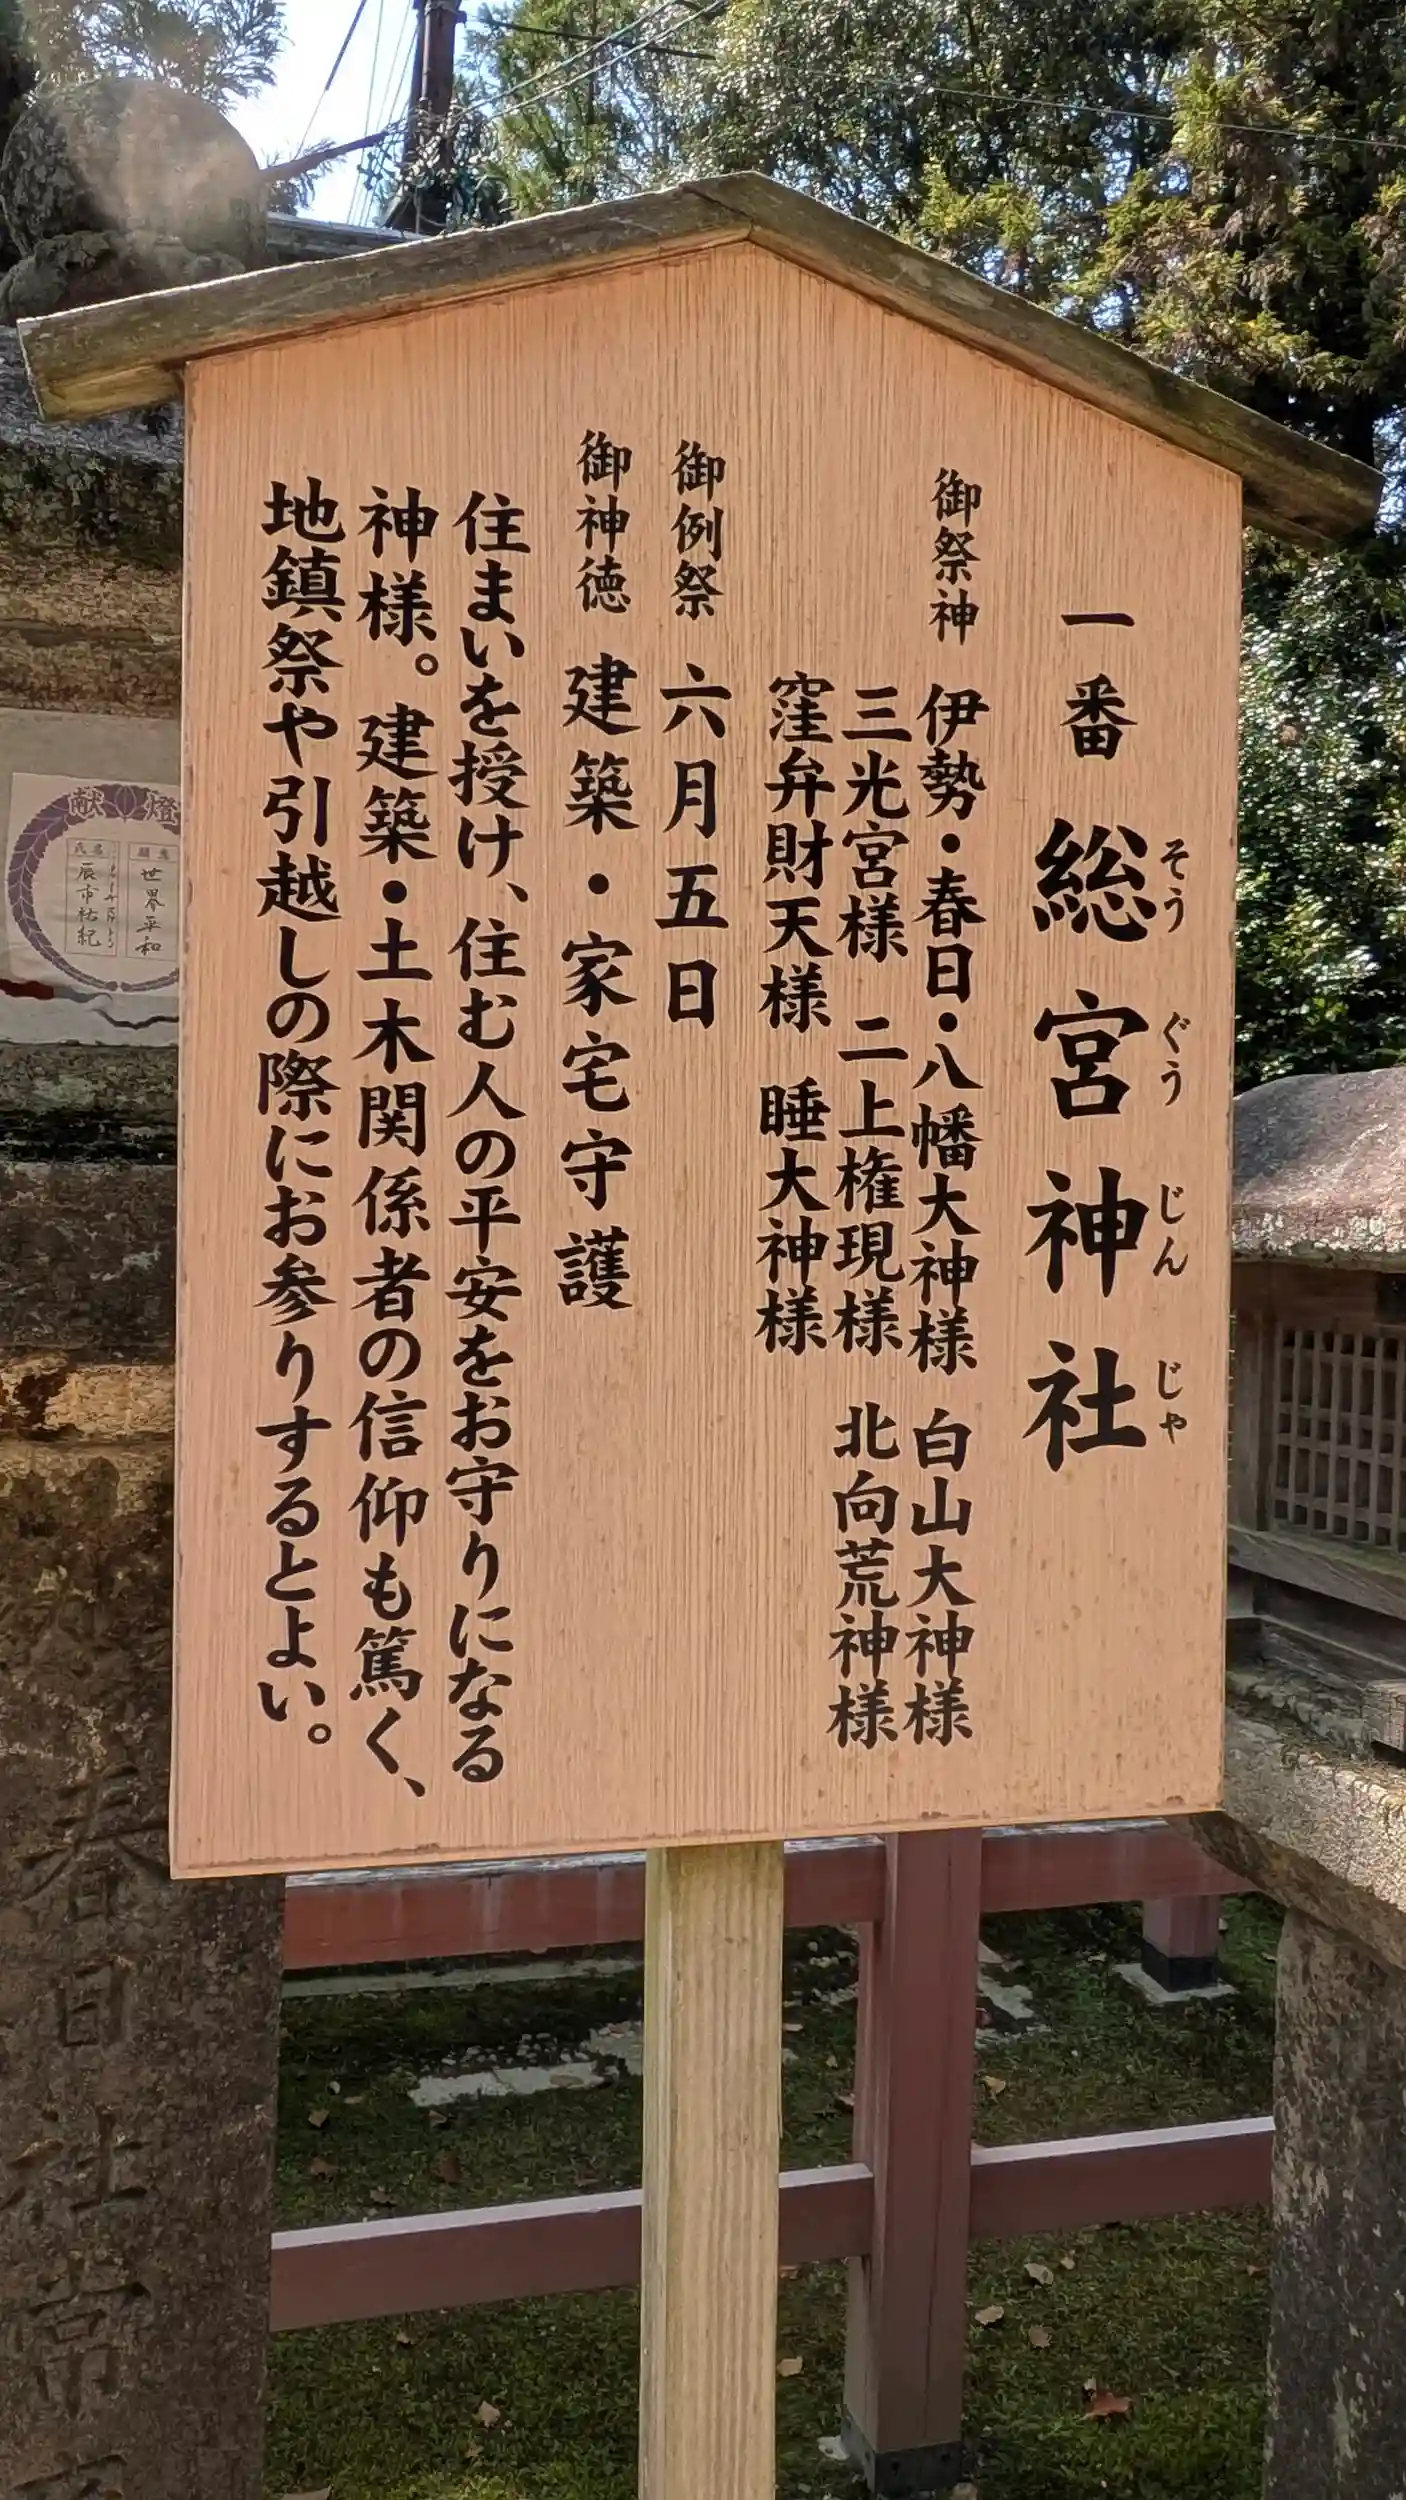 一番 総宮神社
そうぐうじんじゃ
御祭神 伊勢・春日・八幡大神様 白山大神様
三光宮様 二上権現様 北向荒神様
窪弁財天様 睡大神様
御例祭 六月五日
御神徳 建築・家宅守護
住まいを授け、住む人の平安をお守りになる
神様。建築・土木関係者の信仰も篤く、
地鎮祭や引越しの際にお参りするとよい。
献燈
世界平和
辰市祐紀
春日社常